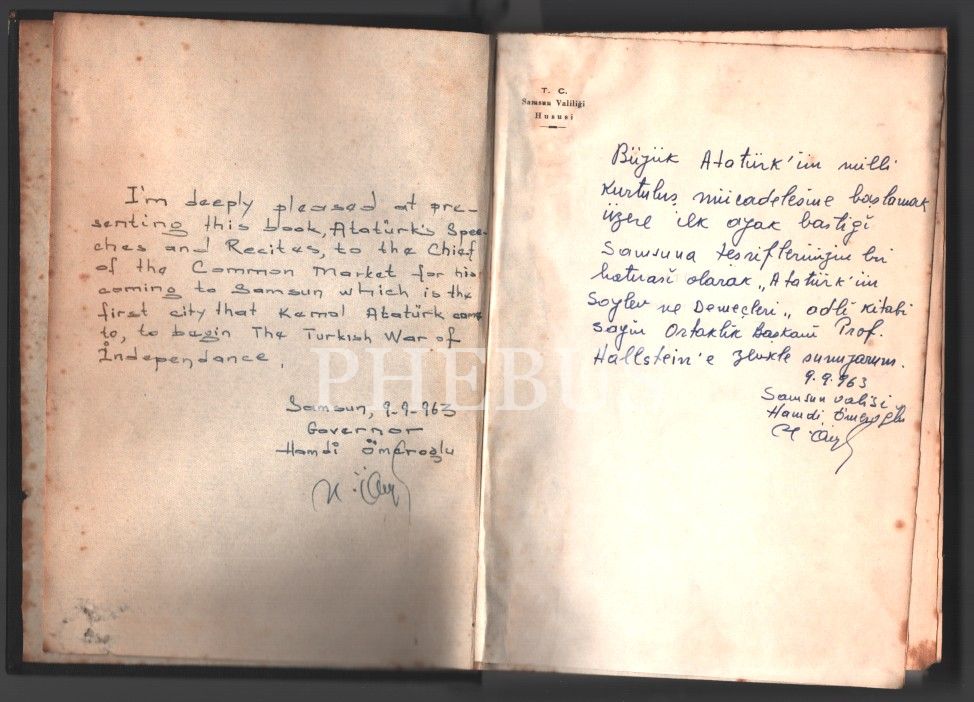 I'm deeply pleased at pre-
senting this book, Atatürk's Spee-
ches and Recites, to the Chief
of the Common Market for his
coming to Samsun which is the
first city that Kemal Atatürk came
to, to begin The Turkish War of
Independance.
Samsun, 9-9-963
Governor
Hamdi Ömeroğlu
T. C.
Samsun Valiliği
Hususi
Büyük Atatürk'ün milli
Kurtuluş mücadelesine başlamak
üzere ilk ayak bastığı
Samsuna teşriflerinizin bir
hatırası olarak „Atatürk'ün
Söylev ve Demeçleri„ adlı kitabı
sayın Ortaklık Başkanı Prof.
Hallstein'e zevkle sunuyorum.
9.9.963
Samsun valisi
Hamdi Ömeroğlu
PHEBUS